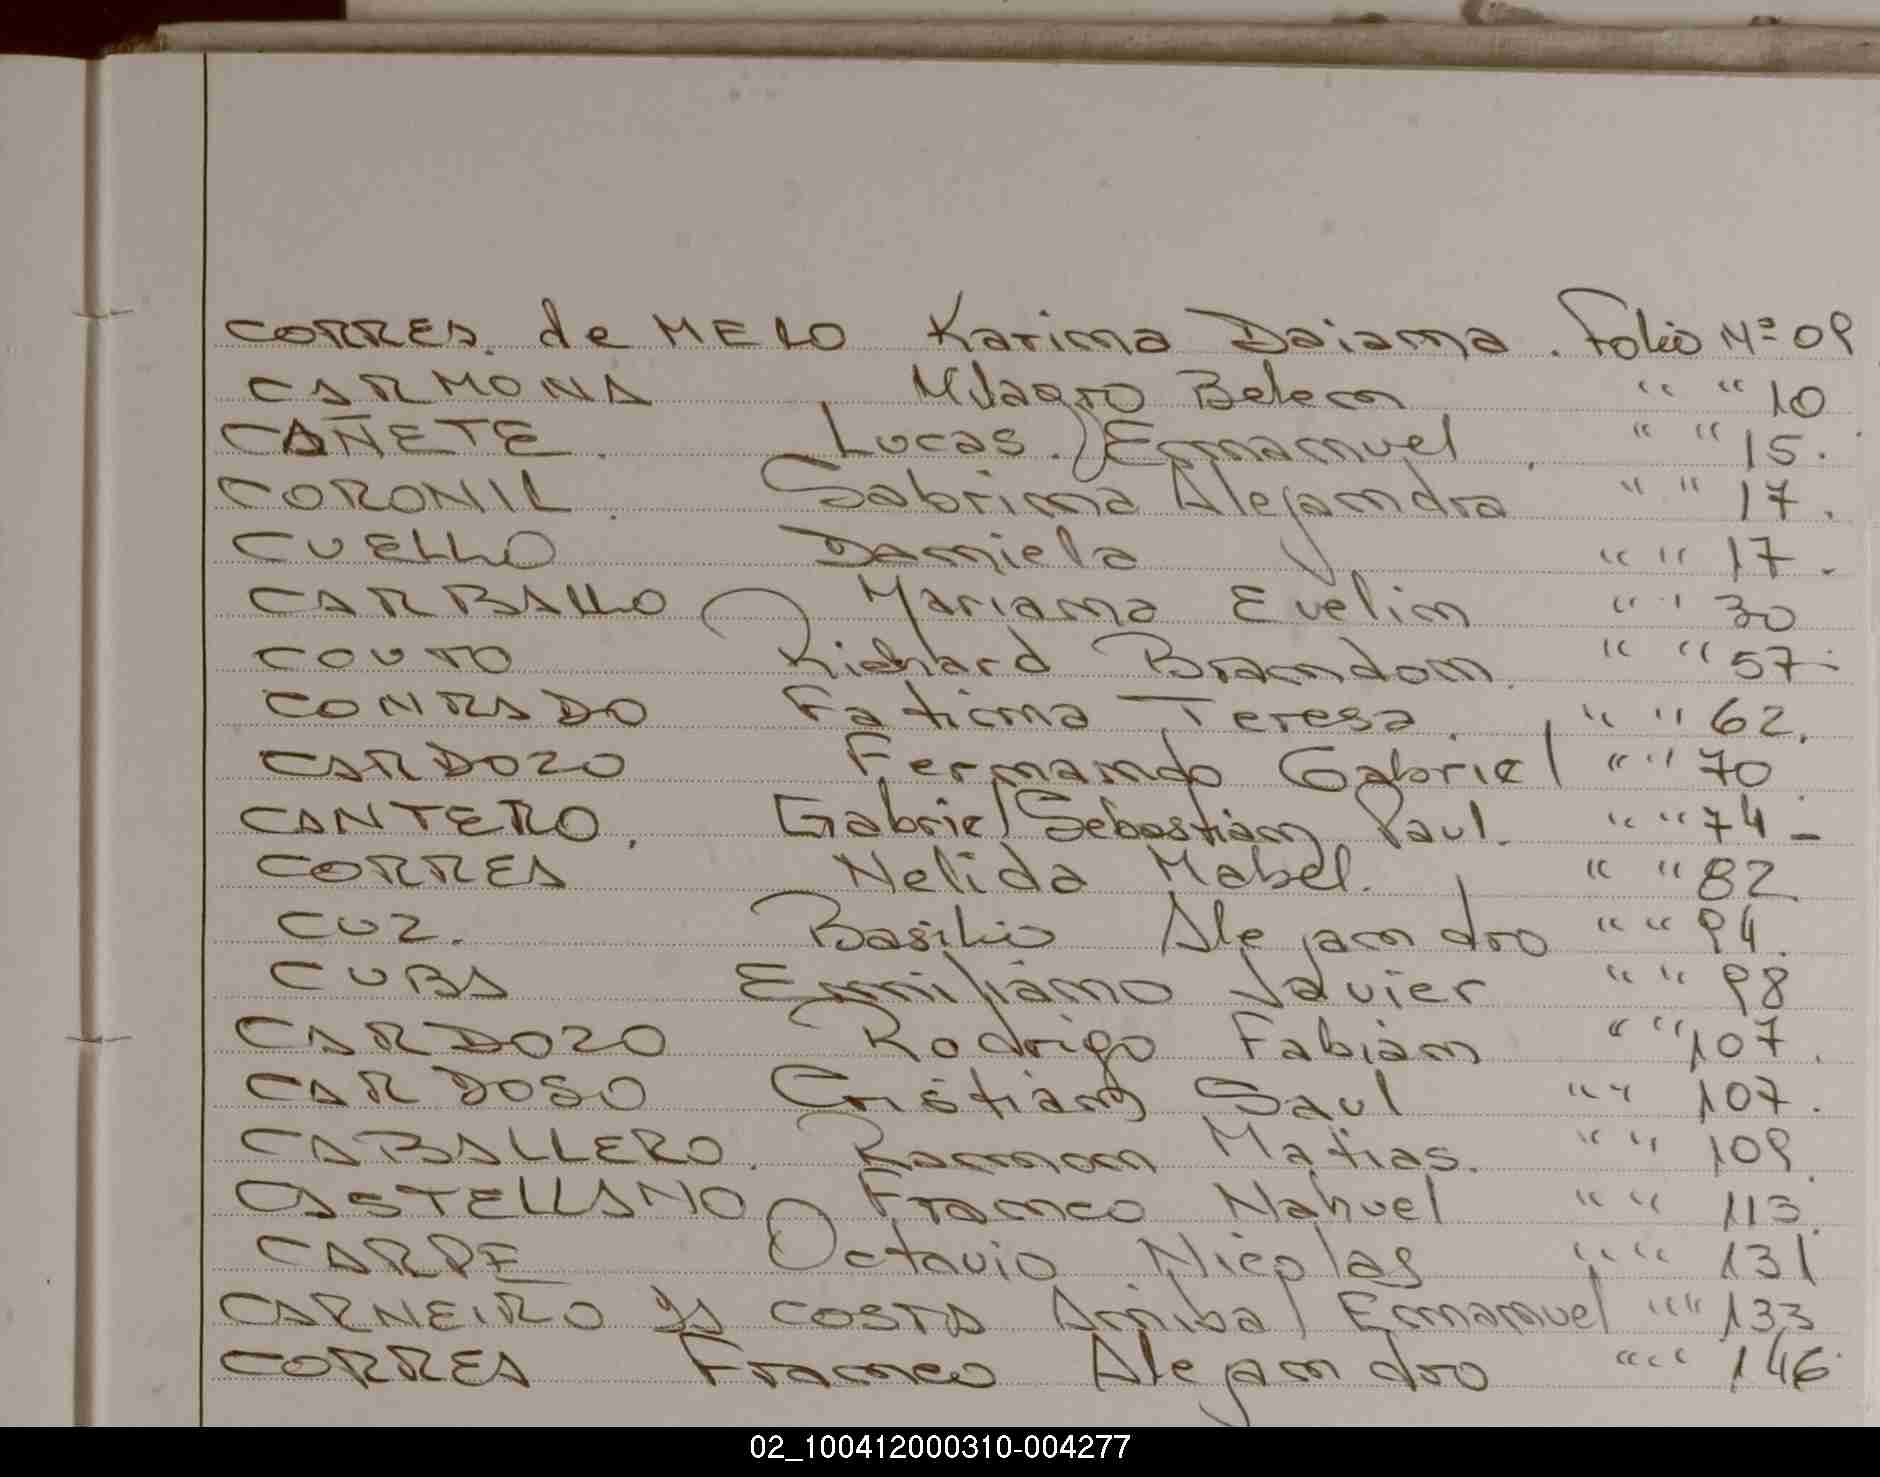 CORREA de MELO Karina Daiana. Folio Nº 09
CARMONA Milagro Belen " " 10
CAÑETE. Lucas Emmanuel. " " 15.
CORONIL. Sabrina Alejandra " " 17.
CUELLO Daniela " " 17.
CARBALLO Mariana Evelin " " 30
COUTO Richard Brandon. " " 57-
CONRADO Faticma Teresa. " " 62.
CARDOZO Fernando Gabriel " " 70
CANTERO. Gabriel Sebastian Paul. " " 74-
CORREA Nelida Mabel. " " 82
CUZ. Basilio Alejandro " " 94.
CUBA Emiliano Javier " " 98
CARDOZO Rodrigo Fabián " " 107.
CARDOSO Cristian Saul " " 107.
CABALLERO. Ramon Matias. " " 109.
CASTELLANO Franco Nahuel " " 113.
CARPE Octavio Nicolas " " 131
CARNEIRO da COSTA Anibal Emmanuel " " 133
CORREA Franco Alejandro " " 146
02_100412000310-004277